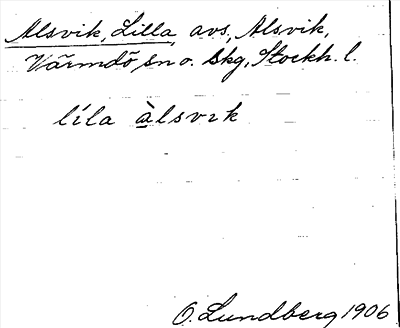 Alsvik, Lilla, avs., Alsvik,
Värmdö sn o. skg, Stockh. l.
líla àlsvik
O. Lundberg 1906